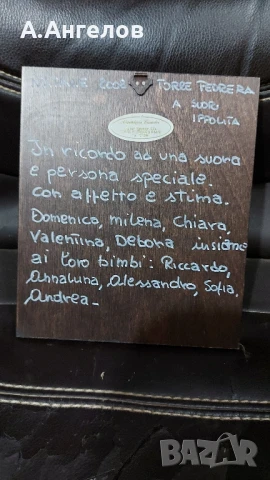 А.Ангелов
TORRE PEDRERA
A SUOR
IPPOLITA
In ricordo ad una suora
e persona speciale.
con affetto e stima.
Domenico, milena, Chiara,
Valentina, Debora insieme
ai loro bimbi: Riccardo,
Annaluna, Alessandro, Sofia,
Andrea_
BAZAR
bg